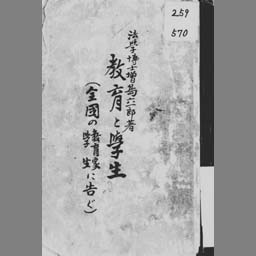 259
570
法学博士増島六一郎著
教育と學生
(全國の教育家學生に告ぐ)